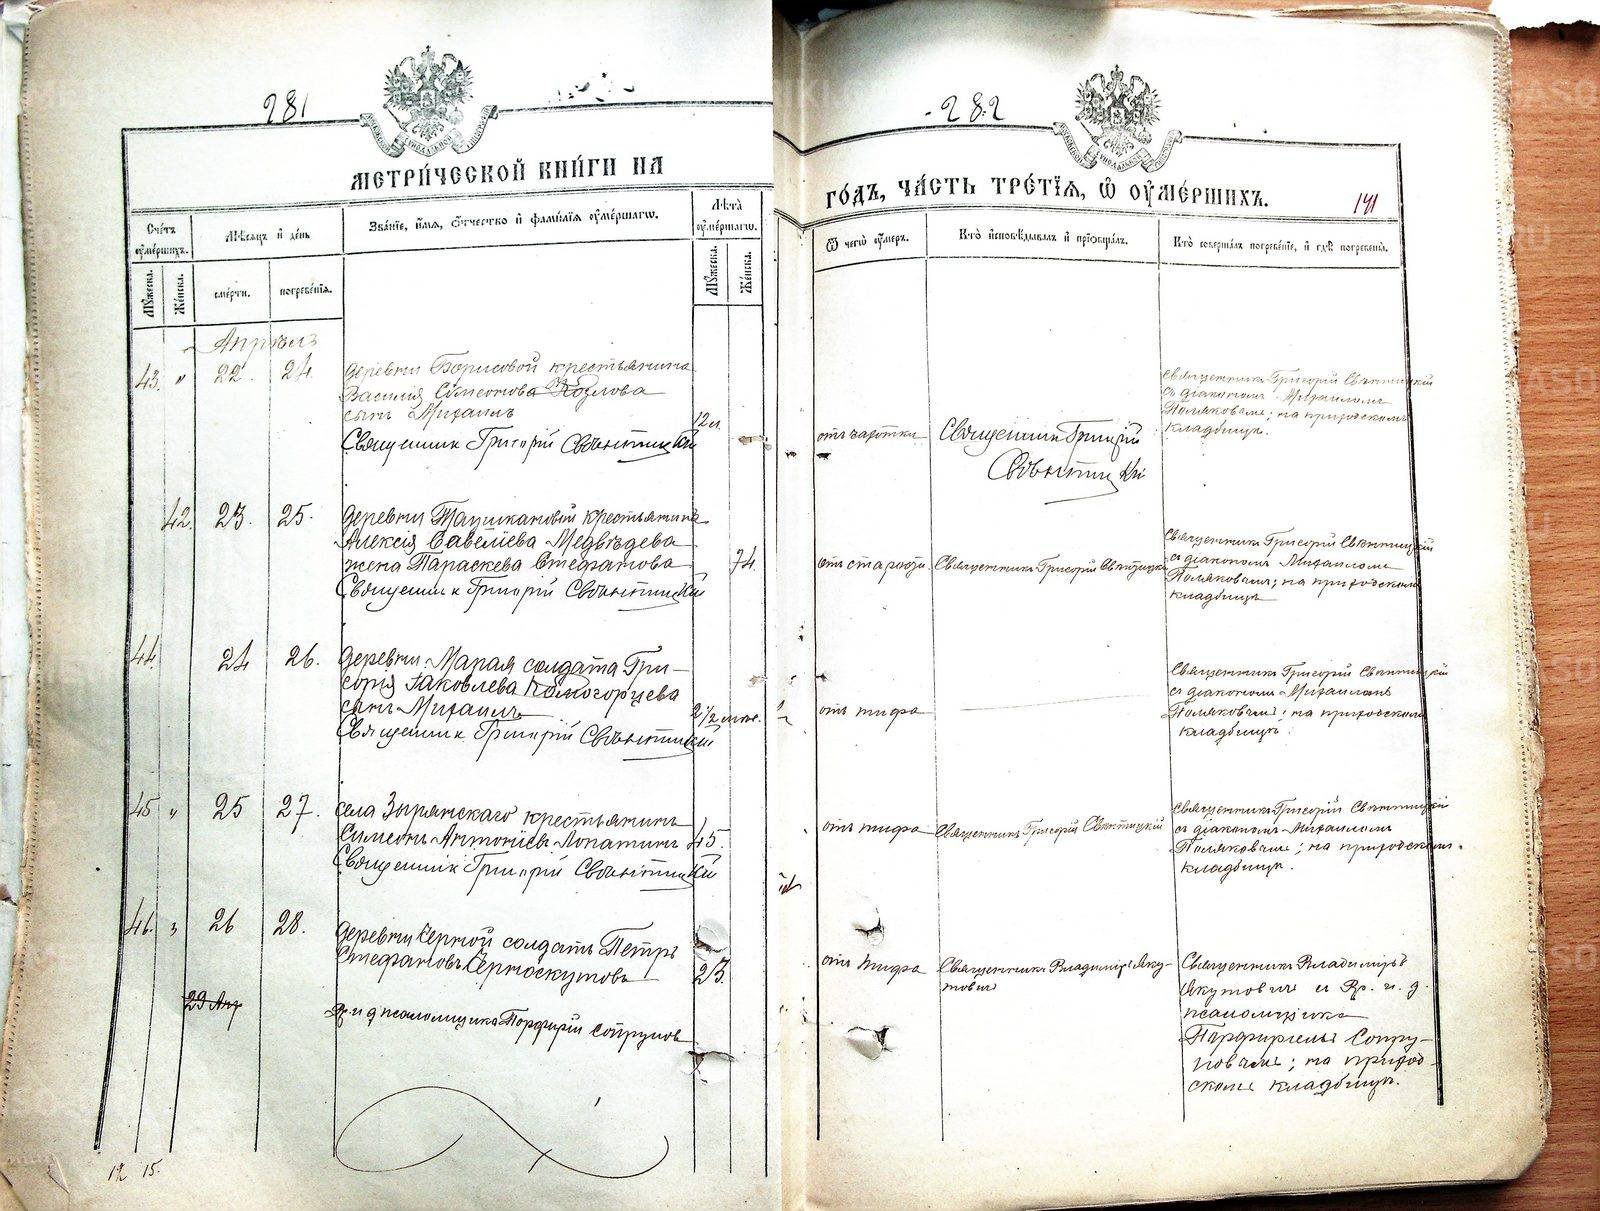 281
МЕТРИ́ЧЕСКОЙ КНИ́ГИ НА
Сче́тъ ᲂу҆ме́ршихъ.
Мѣ́сяцъ и҆ де́нь
Зва́нїе, и҆́мя, ѻ҆́тчество и҆ фами́лїя ᲂу҆ме́ршагѡ.
Лѣ̀та ᲂу҆ме́ршагѡ.
Мꙋ́жеска.
Же́нска.
сме́рти.
погребе́нїя.
Мꙋ́жеска.
Же́нска.
Апрѣль
43. " 22. 24.
деревни Борисовой крестьянина
Василія Симеонова Козлова
сынъ Михаилъ
12 л.
Священникъ Григорій Свѣнтицкій
42. 23. 25.
деревни крестьянина
Алексія Савеліева Медвѣдева
жена Параскева Стефанова
74.
Священникъ Григорій Свѣнтицкій
44. 24 26.
деревни Марая солдата Гри-
горія Іаковлева Комогорцева
сынъ Михаилъ
2 1/2 мѣс.
Священникъ Григорій Свѣнтицкій
45 " 25 27.
села Зырянскаго крестьянинъ
Симеонъ Антоніевъ Лопатинъ
45.
Священникъ Григорій Свѣнтицкій
46. " 26 28.
деревни Черной солдатъ Петръ
Стефановъ Черноскутовъ
23.
29 Апр
Вр. и д псаломщика Порфирій Сопруновъ
12 15.
282
ГО́ДЪ, ЧА́СТЬ ТРЕ́ТЇЯ, Ѽ ОУ҆МЕ́РШИХЪ.
141
Ѿ чегѡ̀ ᲂу҆́меръ.
Кто̀ и҆сповѣ́дывалъ и҆ прїѡбща́лъ.
Кто̀ соверша́лъ погребе́нїе, и҆ гдѣ̀ погребены̀.
отъ чахотки
Священникъ Григорій
Свѣнтицкій
Священникъ Григорій Свѣнтицкій
съ діакономъ Михаиломъ
Поляковымъ; на приходскомъ
кладбищѣ.
отъ старости.
Священникъ Григорій Свѣнтицкій
Священникъ Григорій Свѣнтицкій
съ діакономъ Михаиломъ
Поляковымъ; на приходскомъ
кладбищѣ
отъ тифа
Священникъ Григорій Свѣнтицкій
съ діакономъ Михаиломъ
Поляковымъ; на приходскомъ
кладбищѣ.
отъ тифа
Священникъ Григорій Свѣнтицкій
Священникъ Григорій Свѣнтицкій
съ діакономъ Михаиломъ
Поляковымъ; на приходскомъ
кладбищѣ.
отъ тифа
Священникъ Владиміръ Яку-
товичъ
Священникъ Владиміръ
Якутовичъ и Вр. и. д.
псаломщика
Порфиріемъ Сопру-
новымъ; на приход-
скомъ кладбищѣ.